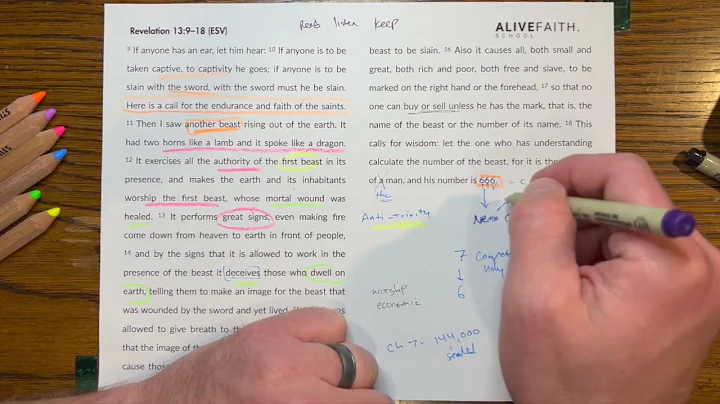 Revelation 13:9–18 (ESV)
Read listen keep
ALIVEFAITH.
SCHOOL
9 If anyone has an ear, let him hear: 10 If anyone is to be
taken captive, to captivity he goes; if anyone is to be
slain with the sword, with the sword must he be slain.
Here is a call for the endurance and faith of the saints.
11 Then I saw another beast rising out of the earth. It
had two horns like a lamb and it spoke like a dragon.
12 It exercises all the authority of the first beast in its
presence, and makes the earth and its inhabitants
worship the first beast, whose mortal wound was
healed. 13 It performs great signs, even making fire
come down from heaven to earth in front of people,
14 and by the signs that it is allowed to work in the
presence of the beast it deceives those who dwell on
earth, telling them to make an image for the beast that
was wounded by the sword and yet lived.
allowed to give breath to
that the image of
cause
beast to be slain. 16 Also it causes all, both small and
great, both rich and poor, both free and slave, to be
marked on the right hand or the forehead, 17 so that no
one can buy or sell unless he has the mark, that is, the
name of the beast or the number of its name. 18 This
calls for wisdom: let the one who has understanding
calculate the number of the beast, for it is the
of a man, and his number is 666. =
the
Anti-trinity
7
6
worship
economic
Ch. 7 - 144,000
sealed